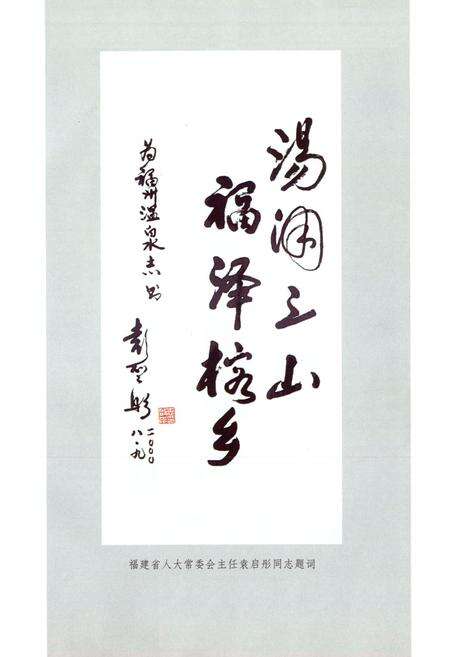 湯润三山
福泽榕乡
为福州温泉志题
袁启彤
二〇〇〇
八·九
福建省人大常委会主任袁启彤同志题词